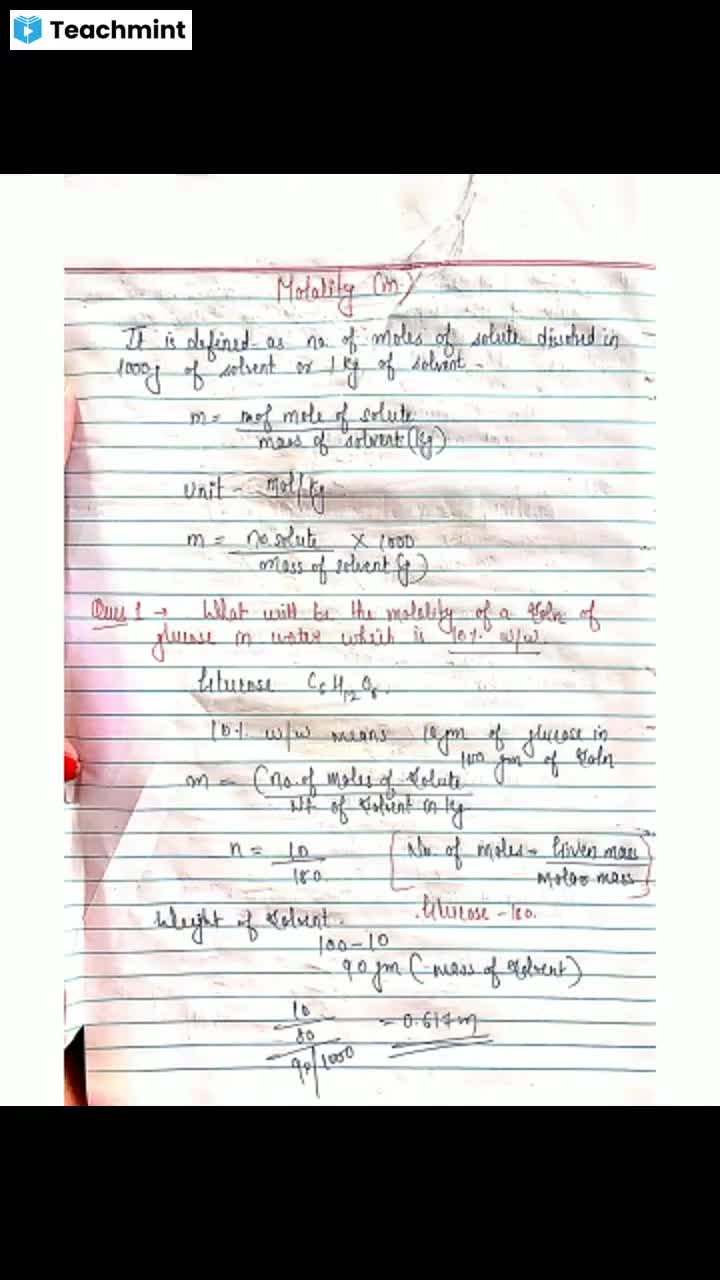 Teachmint
Molality (m)
It is defined as no. of moles of solute dissolved in
1000g of solvent or 1 Kg of solvent -
m = no of mole of solute
mass of solvent (Kg)
Unit - mol/Kg
m = no. solute × 1000
mass of solvent (g)
Ques 1 → What will be the molality of a soln of
glucose in water which is 10% w/w.
Glucose C6H12O6.
10% w/w means 10 gm of glucose in
100 gm of soln
m = (no. of moles of solute
Wt. of solvent in kg
n = 10 [No. of moles = Given mass
180. Molar mass]
Weight of solvent. Glucose - 180.
100-10
90 gm (mass of solvent)
10
80 = 0.617 m
90/1000